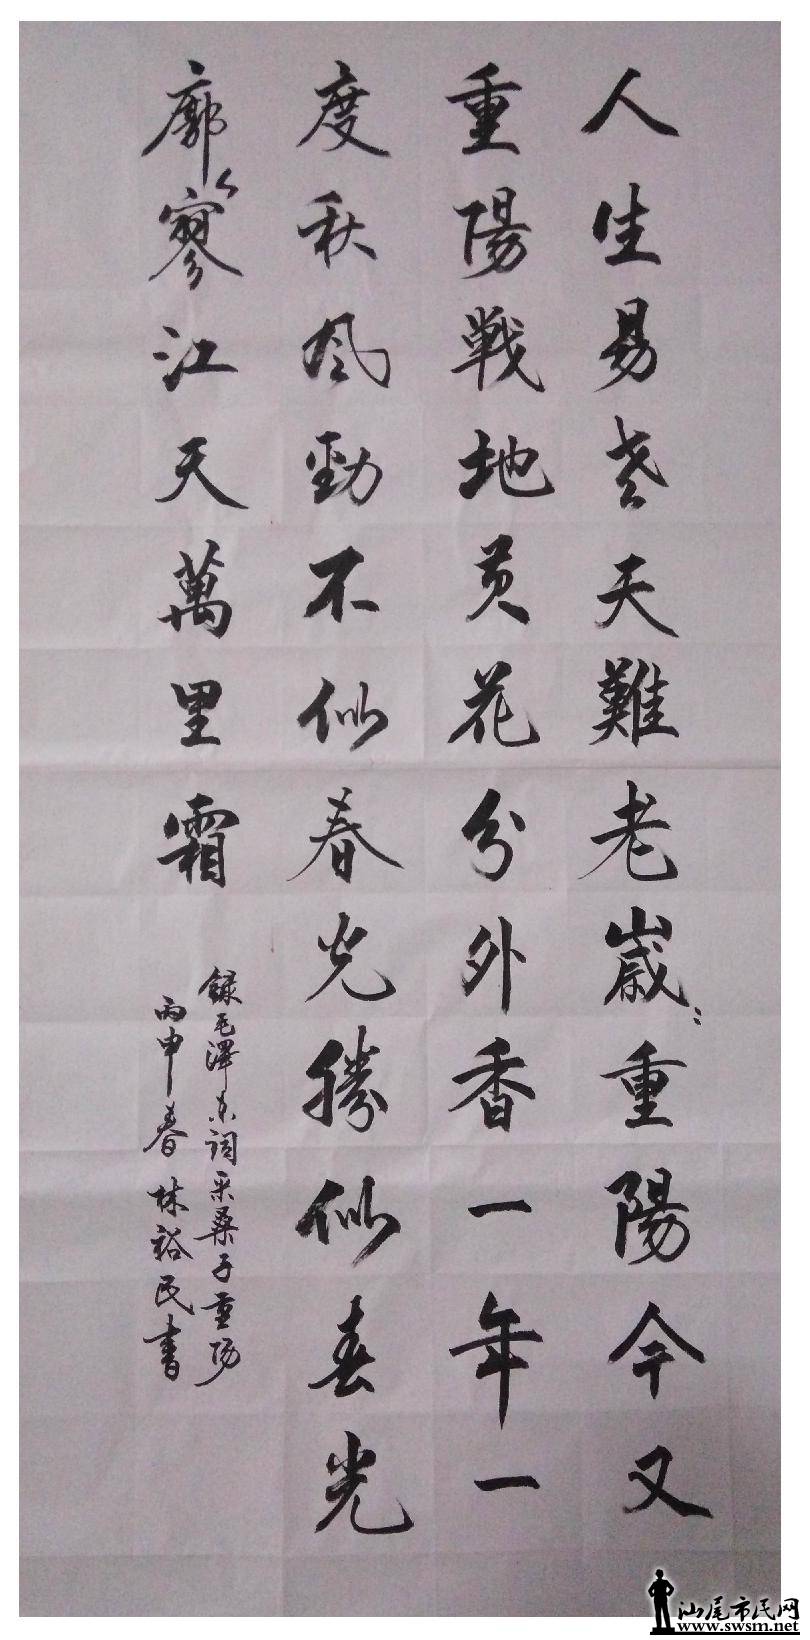 人生易老天難老歲〻重陽今又
重陽戰地黃花分外香一年一
度秋風勁不似春光勝似春光
廖廓江天萬里霜
錄毛澤东詞采桑子重陽
丙申春林裕民書
汕尾市民网
www.swsm.net